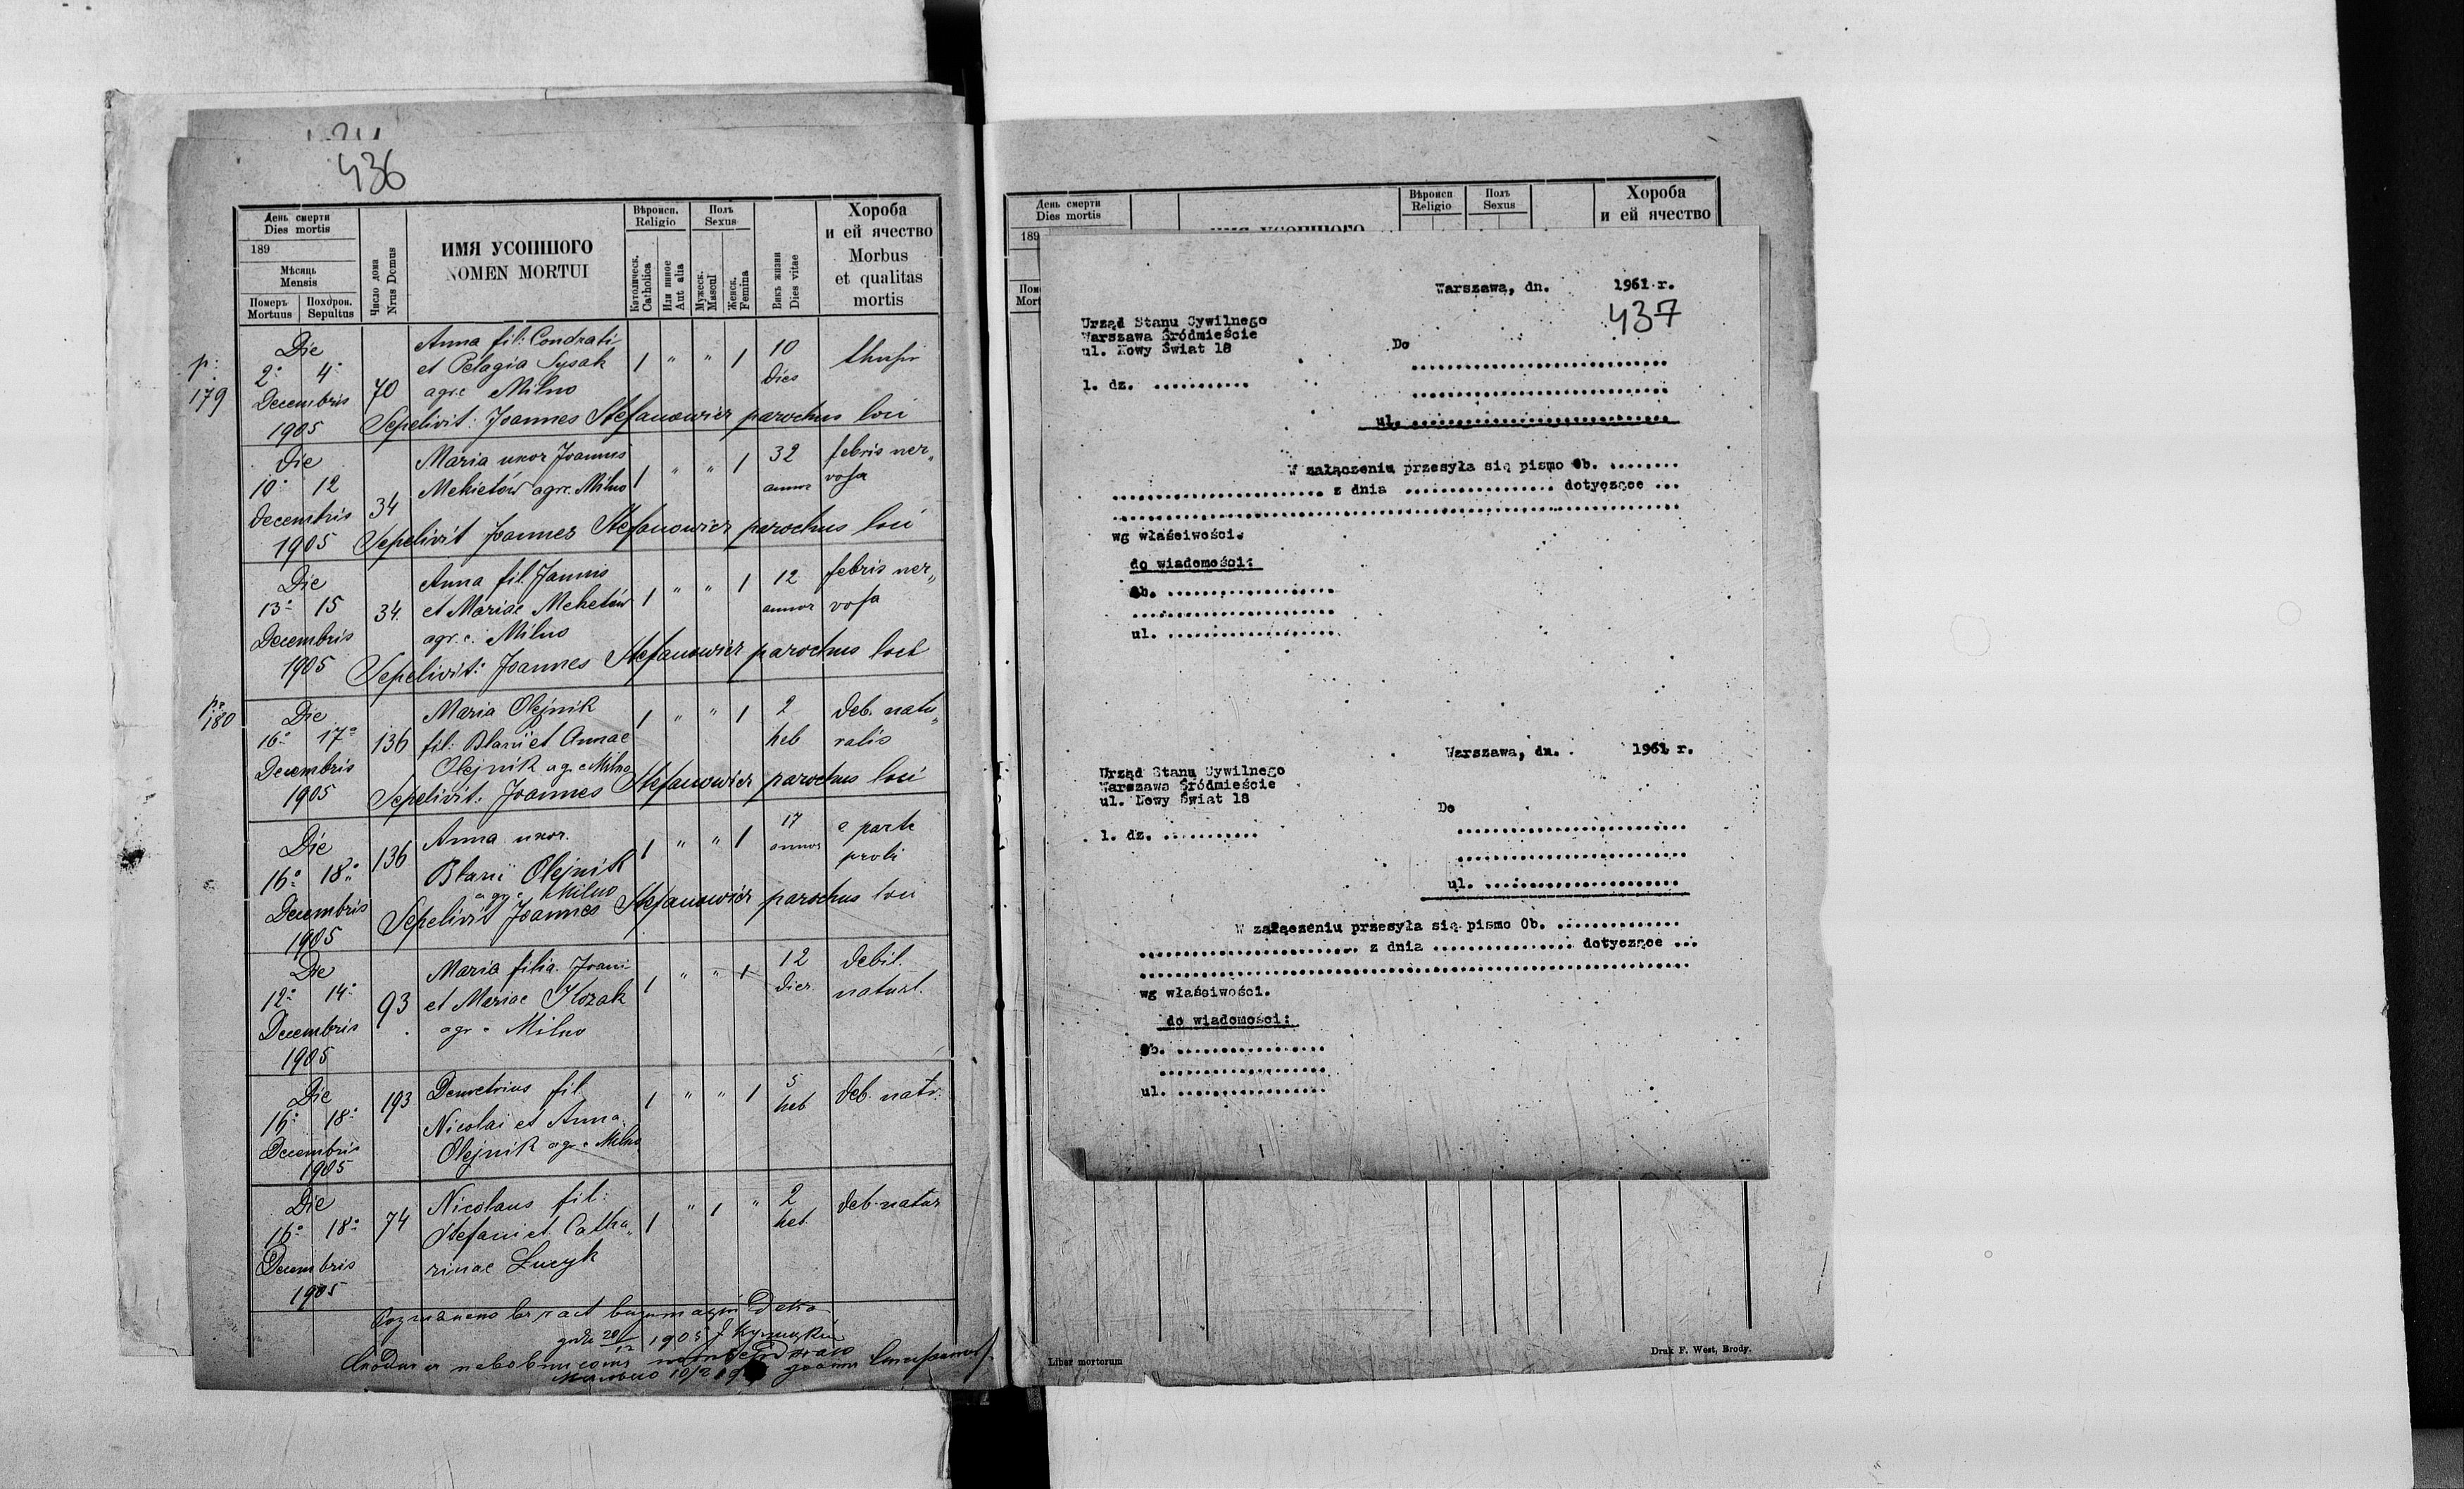 436
День смерти
Dies mortis
189
Мѣсяць
Mensis
Померъ Похорон.
Mortuus Sepultus
Число дома
Nrus Domus
ИМЯ УСОПШОГО
NOMEN MORTUI
Вѣроисп.
Religio
Католическ.
Catholica
Или инное
Aut alia
Полъ
Sexus
Мужеск.
Mascul
Женск.
Femina
Викъ жизни
Dies vitae
Хороба
и ей ячество
Morbus
et qualitas
mortis
p:
179
Die
2° 4°
Decembris
1905
70
Anna fil: Condrati
et Pelagia Sysak
agr. c Milno
1 " " 1
10
dies
Sepelivit: Joannes Stefanowicz parochus loci
Die
10° 12
Decembris
1905
34
Maria uxor Joannis
Mekietów agr. c. Milno
1 " " 1
32
annor
febris ner„
vosa
Sepelivit Joannes Stefanowicz parochus loci
Die
13° 15
Decembris
1905
34.
Anna fil. Joannis
et Mariae Meketów
agr. c. Milno
1 " " 1
12
annor
febris ner„
vosa
Sepelivit: Joannes Stefanowicz parochus loci
180
Die
16° 17°
Decembris
1905
136
Maria Olejnik
fil: Blasii et Annae
Olejnik agr c Milno
1 " " 1
2
heb
deb. natu„
ralis
Sepelivit: Joannes Stefanowicz parochus loci
Die
16° 18°
Decembris
1905
136
Anna uxor
Blasii Olejnik
agr c Milno
1 " " 1
17
annor
e partu
proli
Sepelivit Joannes Stefanowicz parochus loci
Die
12° 14°
Decembris
1905
93
Maria filia Joani
et Mariae
agr c Milno
1 " " 1
12
dier.
debil.
naturl.
Die
16° 18°
Decembris
1905
193
Demetrius fil
Nicolai et Anna
Olejnik agr c Milno
1 " " 1
5
heb
deb. natr.
Die
16° 18°
Decembris
1905
74
Nicolaus fil:
Stefani et Catha„
rinae Lucyk
1 " 1 "
2
heb
deb. natur
1905
День смерти
Dies mortis
189
Вѣроисп
Religio
Полъ
Sexus
Хороба
и ей ячество
Warszawa, dn. 1961 r.
437
Urząd Stanu Cywilnego
Warszawa Śródmieście
ul. Nowy Świat 18
Do
l. dz. ...........
............................
............................
ul. ............................
W załączeniu przesyła się pismo Ob. ........
........................ z dnia ................. dotyczące ...
................................................................
wg właściwości.
do wiadomości:
Ob. ...................
......................
ul. ...................
Warszawa, dn. 1961 r.
Urząd Stanu Cywilnego
Warszawa Śródmieście
ul. Nowy Świat 18
Do
l. dz. ...........
.........................
.........................
ul. .....................
W załączeniu przesyła się pismo Ob. ..............
........................ z dnia ................ dotyczące ...
................................................................
wg właściwości.
do wiadomości:
Ob. .................
...................
ul. .................
Liber mortuorum
Druk F. West, Brody.